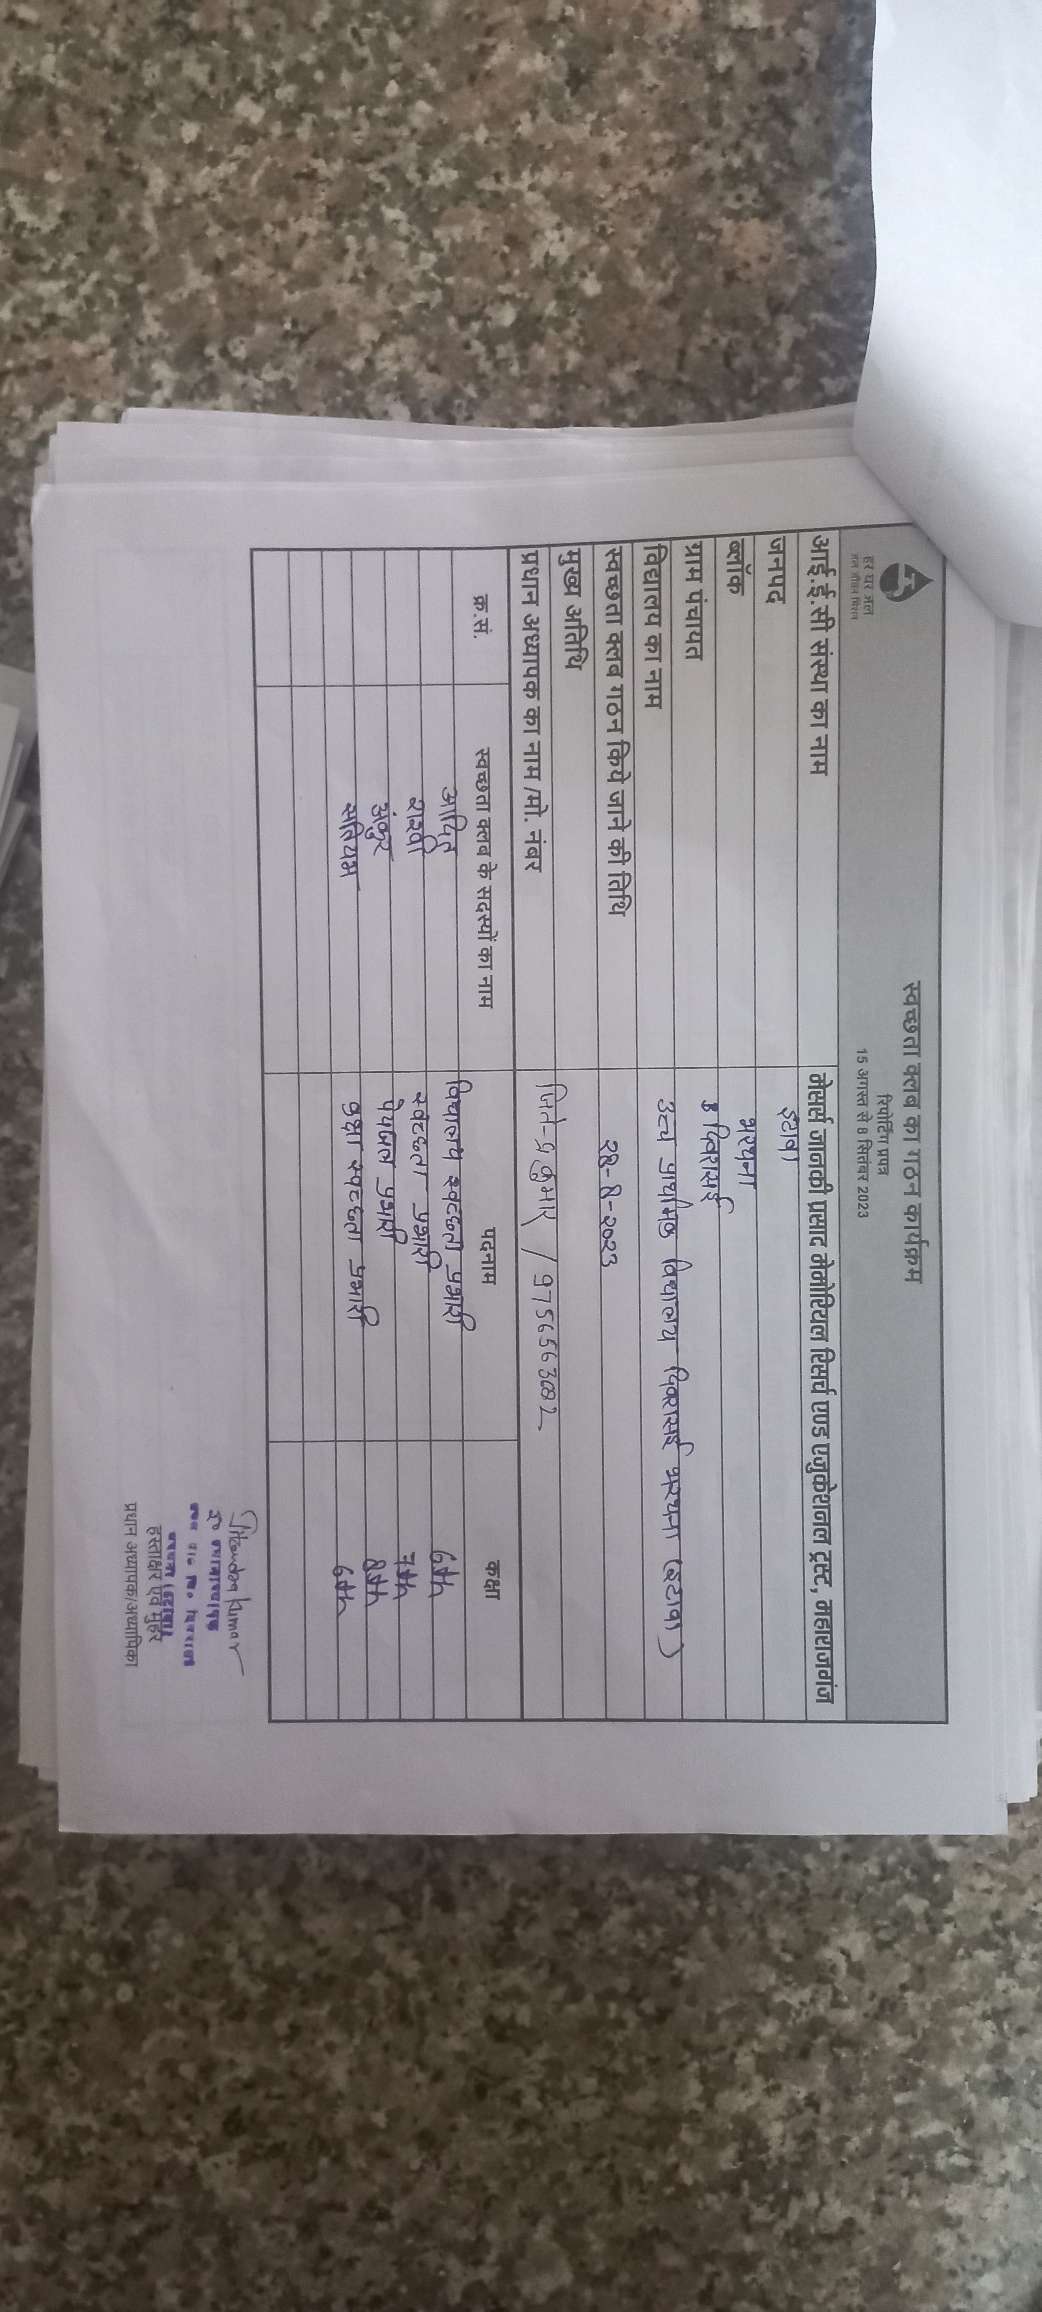 हर घर जल
जल जीवन मिशन
स्वच्छता क्लब का गठन कार्यक्रम
रिपोर्टिंग प्रपत्र
15 अगस्त से 8 सितंबर 2023
आई.ई.सी संस्था का नाम मेसर्स जानकी प्रसाद मेमोरियल रिसर्च एण्ड एजुकेशनल ट्रस्ट, महाराजगंज
जनपद इटावा
ब्लॉक भरथना
ग्राम पंचायत
विद्यालय का नाम उच्च प्राथमिक विद्यालय भरथना (इटावा)
स्वच्छता क्लब गठन किये जाने की तिथि २8-8-२०२३
मुख्य अतिथि
प्रधान अध्यापक का नाम /मो. नंबर कुमार /
क्र.सं. स्वच्छता क्लब के सदस्यों का नाम पदनाम कक्षा
विद्यालय स्वच्छता प्रभारी 6th
स्वच्छता प्रभारी 7th
अंकुर पेयजल प्रभारी 8th
कक्षा स्वच्छता प्रभारी 6th
Kumar
हस्ताक्षर एवं मुहर
प्रधान अध्यापक/अध्यापिका